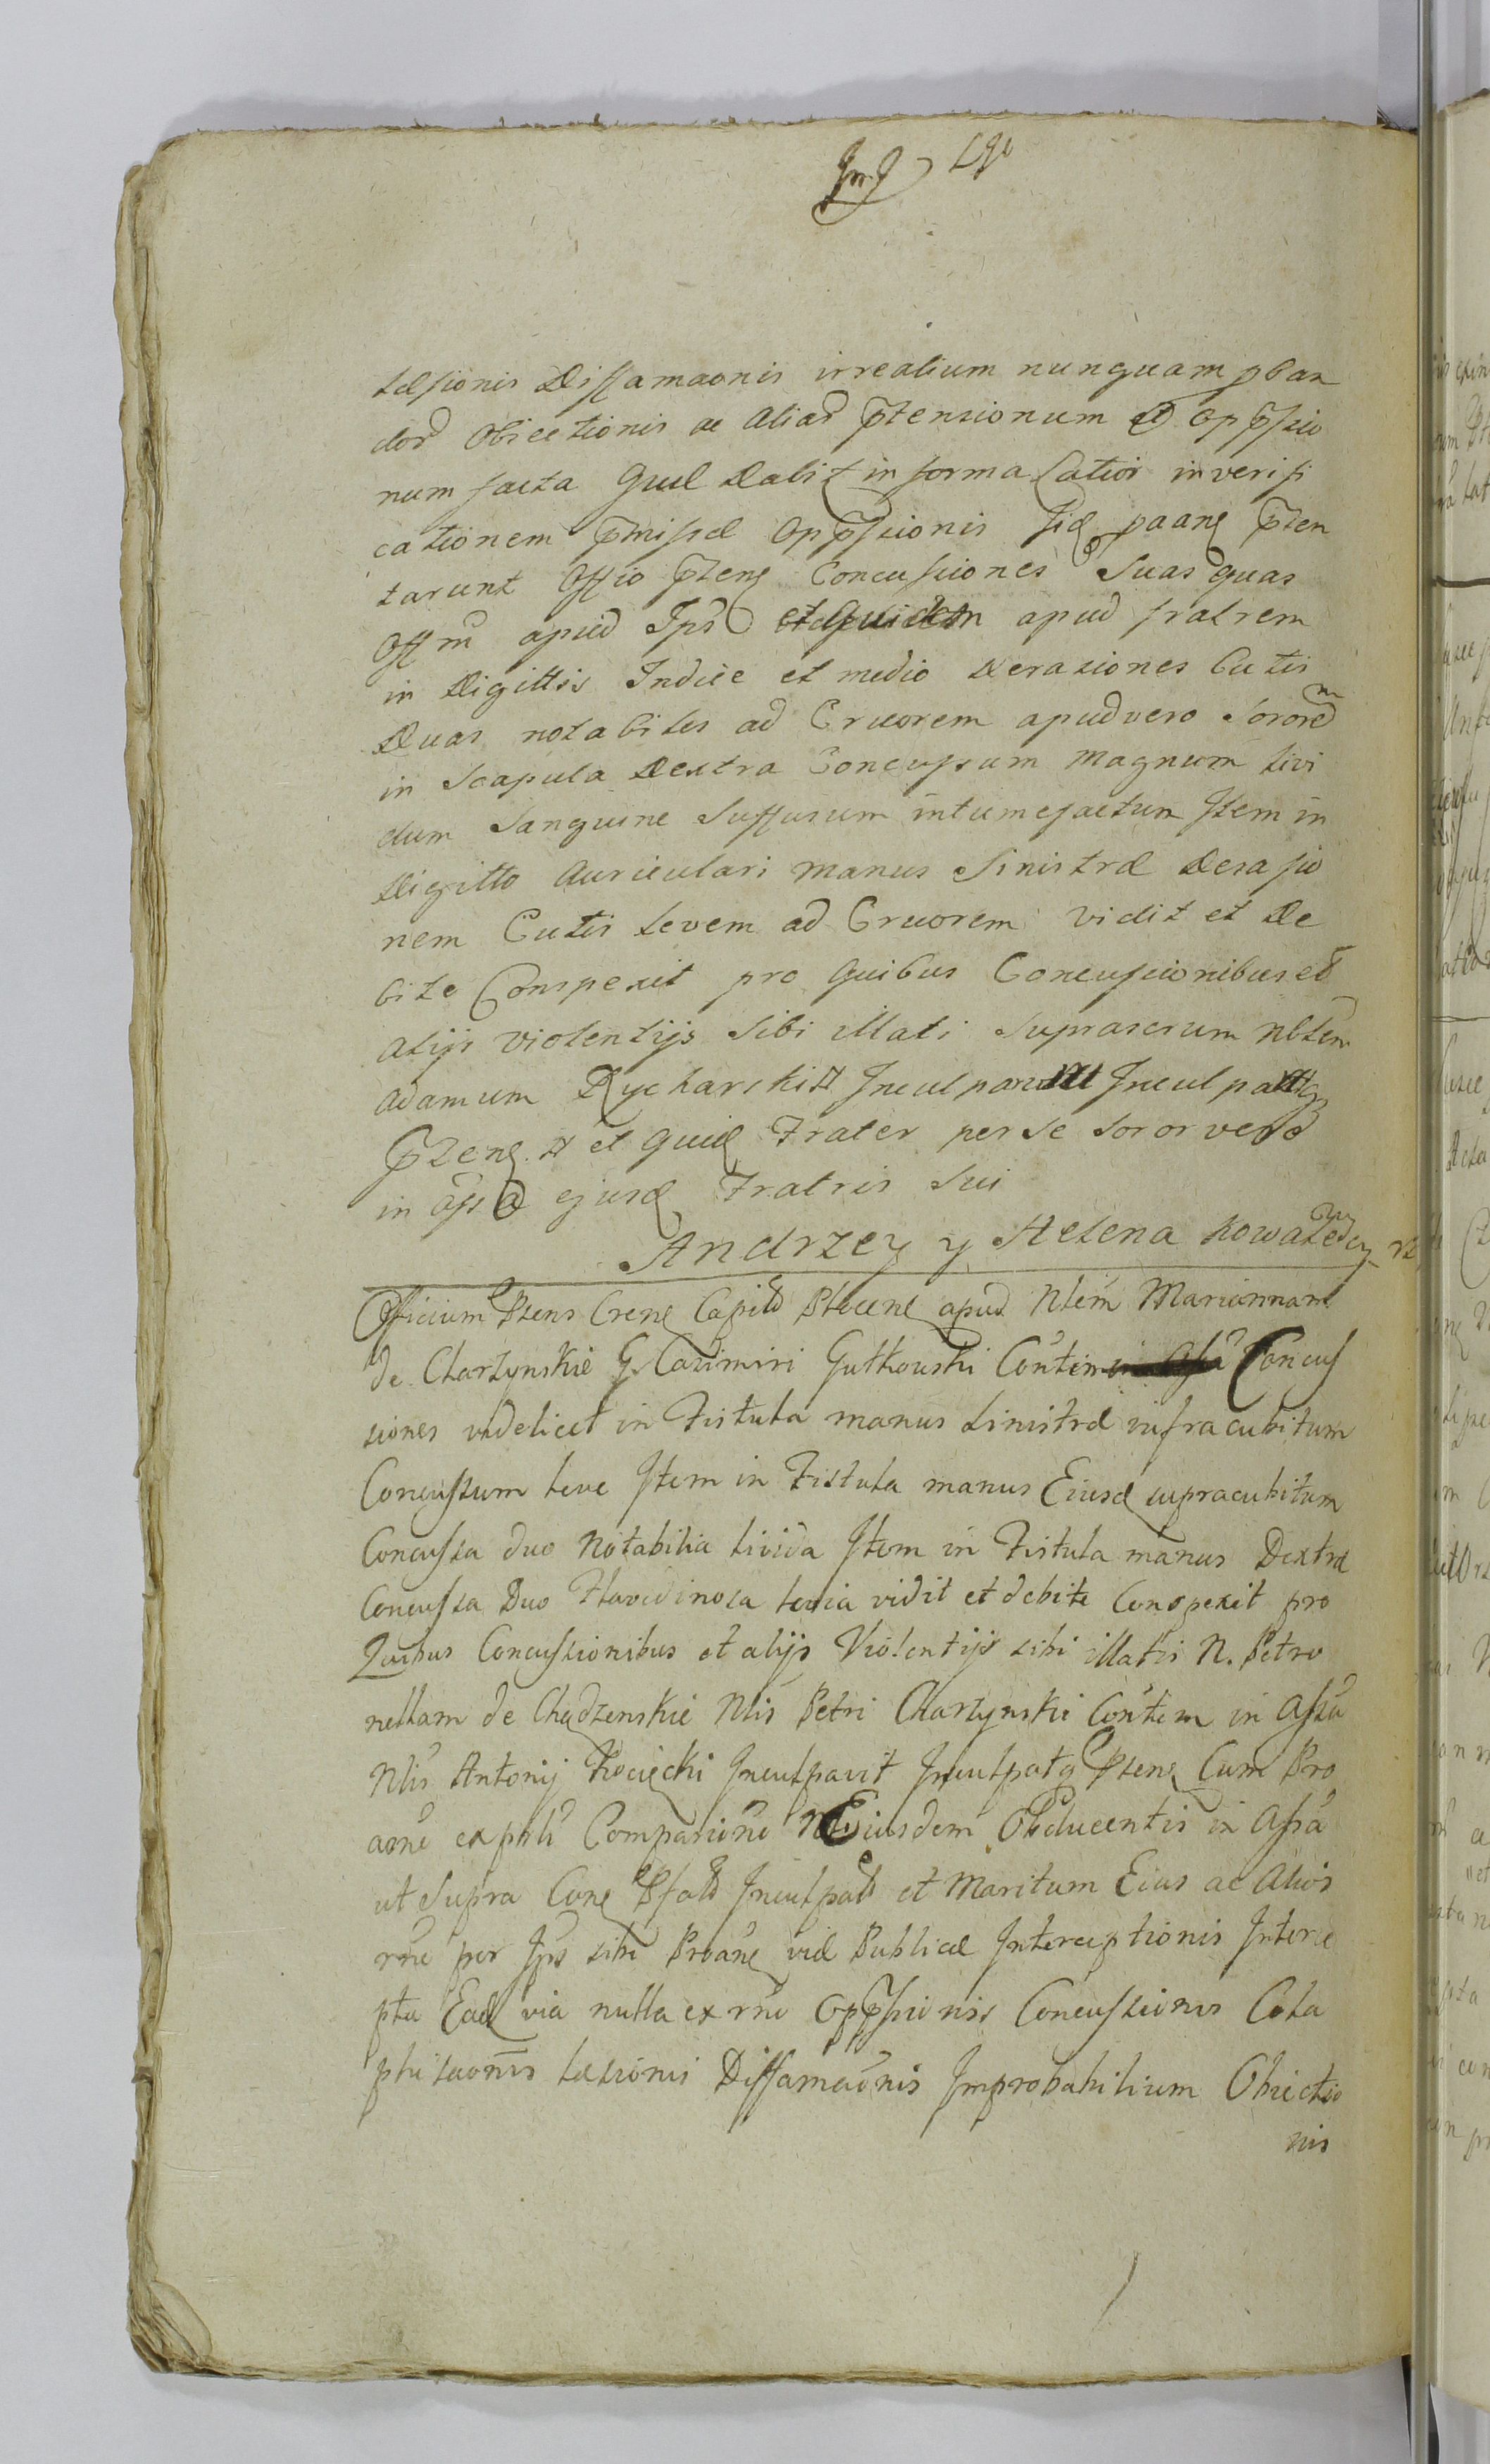 læsionis Diffamaonis irrealium nunquam pban
dor Obiectionis ac alias ptensionum et oppssio
num facta Quæ dabit in forma latiori in verifi
cationem pmissæ Oppssionis sid paang pten
tarunt Offio pteng Concussiones suas quas
Offm apud Ips et quidem apud fratrem
in Digittis Indice et medio Derasiones Cutis
Duas notabiles ad Cruorem apud vero Sororem
in Scapula Dextra Concussum magnum livi
dum Sanguine Suffusum intumefactum Item in
Digitto Auriculari manus Sinistræ Derasio
nem Cutis levem ad Cruorem vidit et De
bite Conspexit pro quibus Concussionibus et
alijs violentijs sibi illati suprascrum Nblem
Adamum Rycharski Inculparunt Inculpantq
Pteng et quid Frater per se soror vero
in assa ejusd Fratris sui
Andrzey y Helena Kowalewscy
Officium Ptens Crene Capitd Ploceng apud Nlem Mariannam
de Chartynskie G Cazimiri Gutkowski Contem Concus
siones videlicet in Fistula manus sinistræ infra cubitum
Concussum leve Item in Fistula manus Eiusd supra cubitum
Concussa duo Notabilia livida Item in Fistula manus Dextræ
Concussa Duo Flavedinosa levia vidit et debite Conspexit pro
Quibus Concussionibus et alijs Violentijs sibi illatis N. Petro
nellam de Chądzenskie Nlis Petri Chartynski Contem in Assa
Nlis Antonij Kocięcki Inculpavit Inculpatq Pteng Cum Pro
aone expsli Comparione Eiusdem Obducentis in Assa
ut Supra Cong Psatd Inculpatd et Maritum Eius ac Alios
rne per Ips sibi Proang vid Publicæ Interceptionis Interce
pta Ead via nulla ex rne Oppssionis Concussionis Cola
phisaonis læsionis Diffamaonis Improbabilium Obiectio
nis